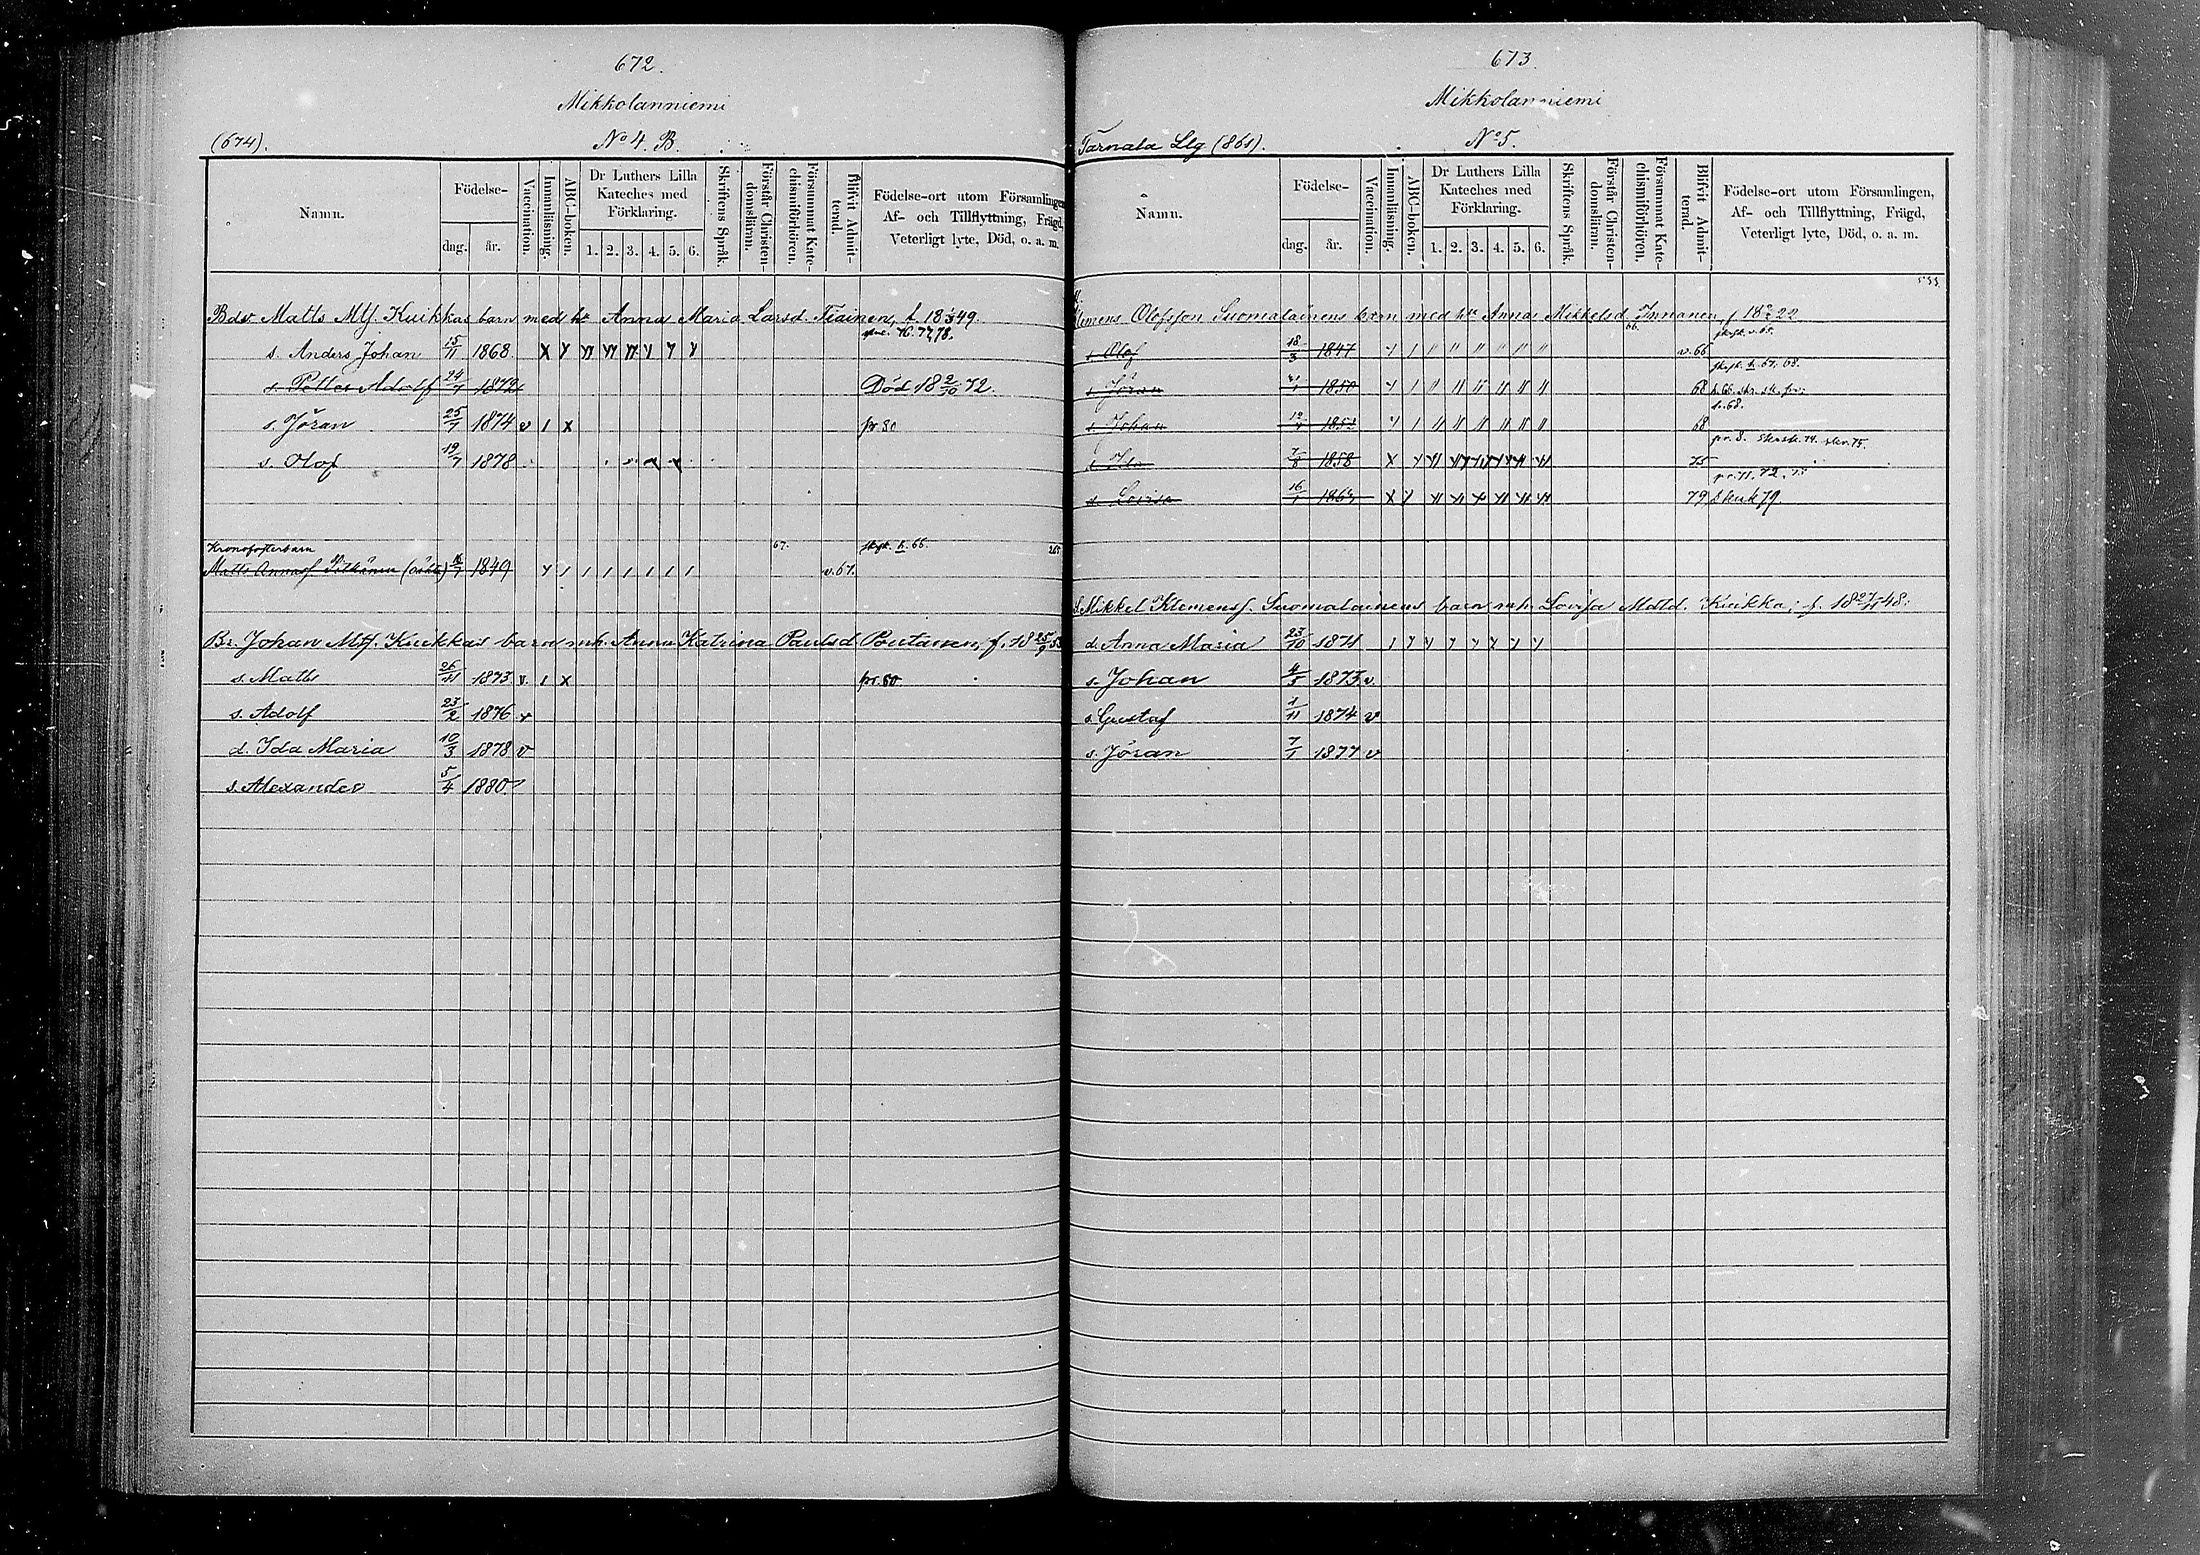 672.
Mikkolanniemi
(674). No 4. B.
Namn. Födelse- dag. år. Vaccination. Innanläsning. ABC-boken. Dr Luthers Lilla Kateches med Förklaring. 1. 2. 3. 4. 5. 6. Skriftens Språk. Förstår Christendomsläran. Försummat Katechismiförhören. Blifvit Admitterad. Födelse-ort utom Församlingen, Af- och Tillflyttning, Frägd, Veterligt lyte, Död, o. a. m.
Bdsr Matts Mtsf. Kuikkas barn med h: Anna Maria Larsd. Tiainen, f. 49.
s. Anders Johan 15/11 1868.
s. Petter Adolf 24/7 1872 Död 18 2/10 72.
s. Jöran 25/7 1874 v 1 x pr. 80
s. Olof 19/7 1878
Kronofosterbarn 67. skrsk. h. 66.
Matts Annasf. 1849 v. 67.
Br. Johan Mtsf. Kuikkas barn m.h. Anna Katrina Paulsd Poutanen, f. 18 25/9
s. Matts 26/11 1873 v. 1 x pr. 80
s. Adolf 23/2 1876 v
d. Ida Maria 10/3 1878 v
s. Alexander 5/4 1880
673.
Mikkolanniemi
Tarnala Llg (861). No 5.
Namn. Födelse- dag. år. Vaccination. Innanläsning. ABC-boken. Dr Luthers Lilla Kateches med Förklaring. 1. 2. 3. 4. 5. 6. Skriftens Språk. Förstår Christendomsläran. Försummat Katechismiförhören. Blifvit Admitterad. Födelse-ort utom Församlingen, Af- och Tillflyttning, Frägd, Veterligt lyte, Död, o. a. m.
Klemens Olofsson Suomalainens barn med h: Anna Mikkelsd Innanen, f. 22
s. Olof 18/3 1847 v. 66
s. Jöran 1850 68
s. Johan 68
d. Ida 7/8 1858 75
d. Lovisa 16/1 79 Skrsk 79.
S. Mikkel Klemensf. Suomalainens barn m.h. Lovisa Matsd. Kuikka, f. 18 27/11 48.
d. Anna Maria 23/10 1871
s. Johan 4/5 1873 v.
s. Gustaf 1/11 1874 v
s. Jöran 7/1 1877 v